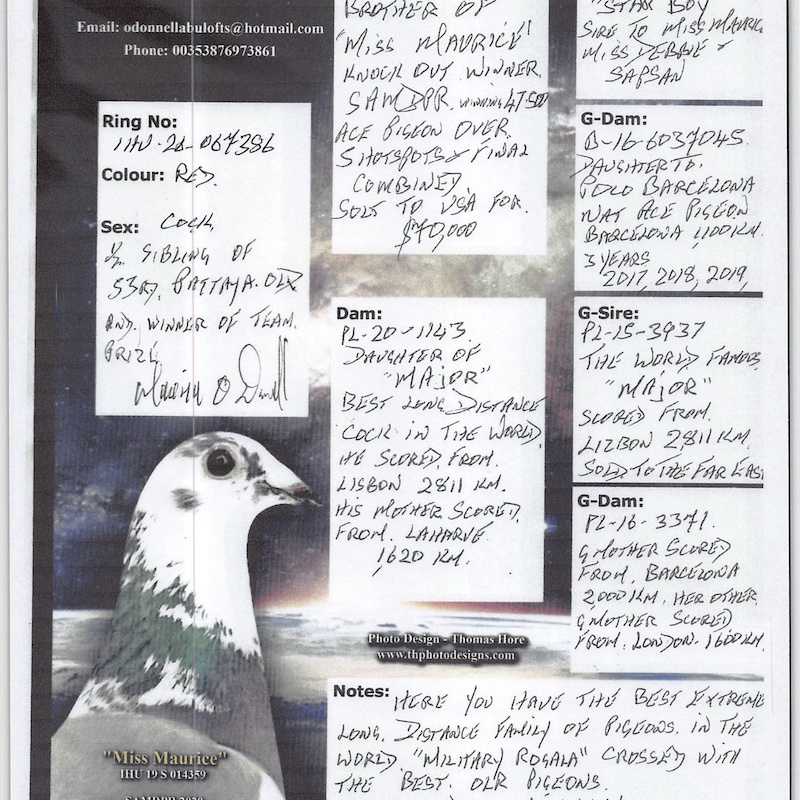 Email: odonnellabulofts@hotmail.com
Phone: 00353876973861
Ring No:
IHU-26-067386
Colour: RED.
Sex: COCK
½ SIBLING OF
53RD. PATTAYA. OLR
AND. WINNER OF TEAM.
PRIZE
BROTHER OF
"MISS MAURICE"
KNOCK OUT WINNER.
SAMDPR. WINNING 47.500
ACE PIGEON OVER.
5 HOTSPOTS & FINAL
COMBINED.
SOLD TO USA FOR.
$70,000
Dam:
PL-20-1143.
DAUGHTER OF
"MAJOR"
BEST LONG DISTANCE
COCK IN THE WORLD.
HE SCORED. FROM.
LISBON 2811 KM.
HIS MOTHER SCORED.
FROM. LAHARVE.
1620 KM.
"STAR BOY
SIRE TO MISS MAURIC
MISS DEBBIE &
SAPSAN
G-Dam:
B-16-6037045.
DAUGHTER TO.
POLO BARCELONA
NAT ACE PIGEON
BARCELONA 1,100 KM.
3 YEARS
2017, 2018, 2019,
G-Sire:
PL-15-3937
THE WORLD FAMOUS
"MAJOR"
SCORED FROM.
LIZBON 2,811 KM
SOLD TO THE FAR EAST
G-Dam:
PL-16-3371.
G,MOTHER SCORED
FROM. BARCELONA
2,000 KM. HER OTHER
G,MOTHER SCORED
FROM. LONDON. 1600 KM.
Photo Design - Thomas Hore
www.thphotodesigns.com
Notes: HERE YOU HAVE THE BEST EXTREME
LONG. DISTANCE FAMILY OF PIGEONS. IN THE
WORLD. "MILITARY ROSALA" CROSSED WITH
THE BEST. OLR PIGEONS.
"Miss Maurice"
IHU 19 S 014359
SAMDPR 2020